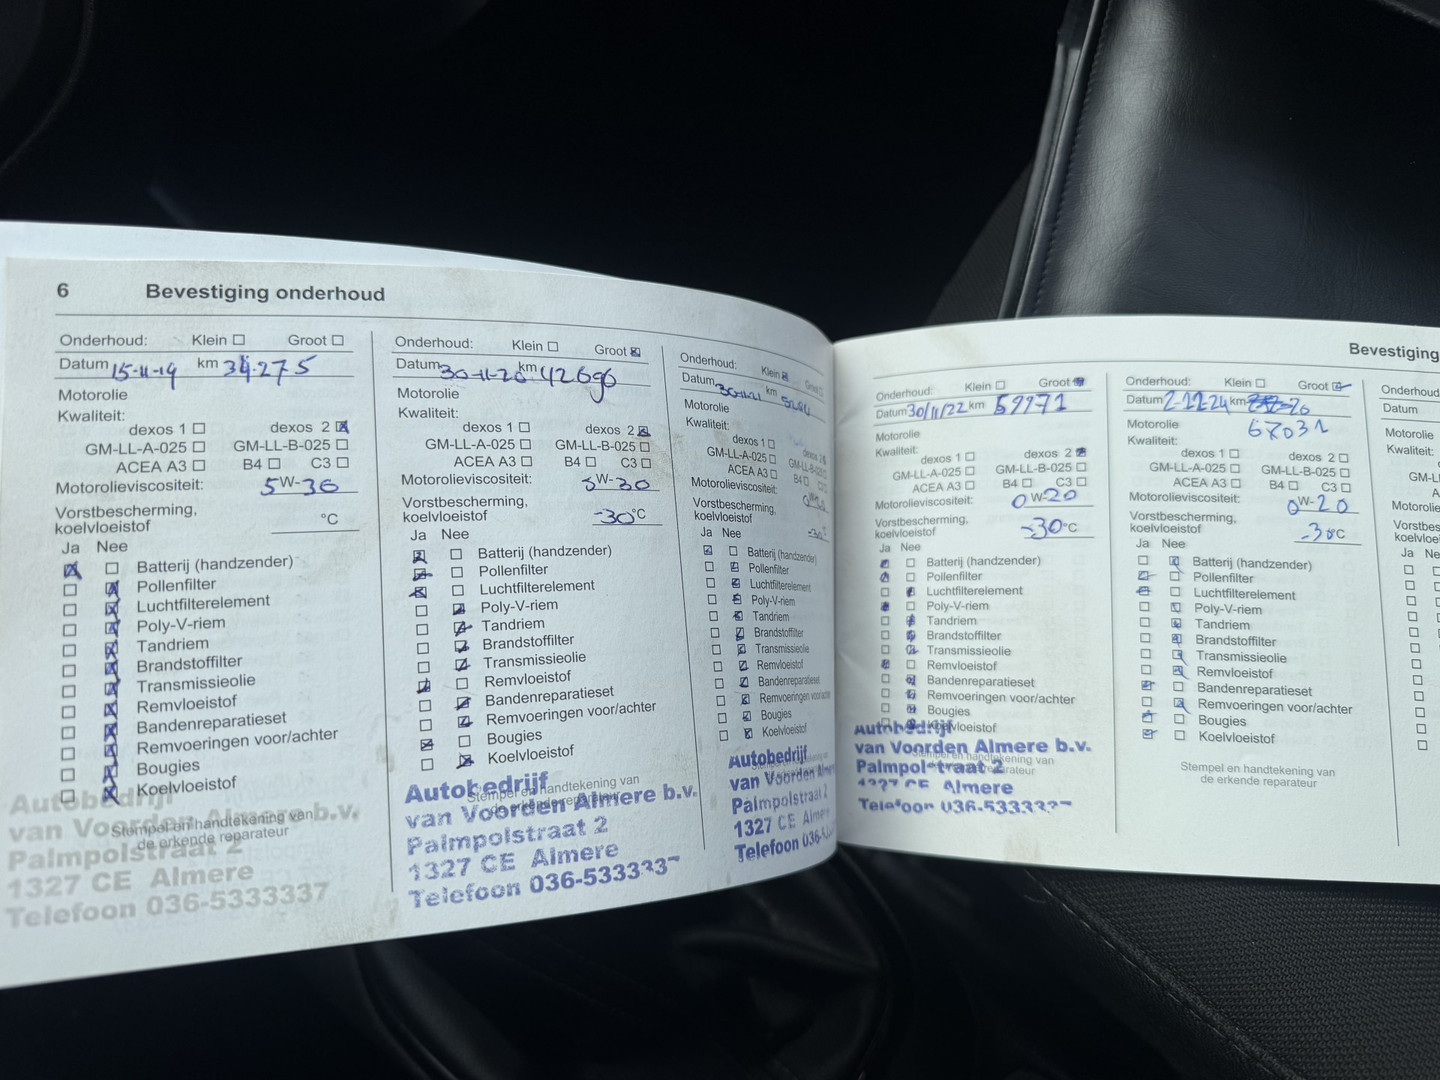 6 Bevestiging onderhoud
Onderhoud: Klein Groot
Datum 15-11-19 km 34.275
Motorolie
Kwaliteit:
dexos 1 dexos 2
GM-LL-A-025 GM-LL-B-025
ACEA A3 B4 C3
Motorolieviscositeit: 5W-30
Vorstbescherming,
koelvloeistof °C
Ja Nee
Batterij (handzender)
Pollenfilter
Luchtfilterelement
Poly-V-riem
Tandriem
Brandstoffilter
Transmissieolie
Remvloeistof
Bandenreparatieset
Remvoeringen voor/achter
Bougies
Koelvloeistof
Stempel en handtekening van
de erkende reparateur
Autobedrijf
van Voorden Almere b.v.
Palmpolstraat 2
1327 CE Almere
Telefoon 036-5333337
Onderhoud: Klein Groot
Datum 30-11-20 km 42696
Motorolie
Kwaliteit:
dexos 1 dexos 2
GM-LL-A-025 GM-LL-B-025
ACEA A3 B4 C3
Motorolieviscositeit: 5W-30
Vorstbescherming,
koelvloeistof -30°C
Ja Nee
Batterij (handzender)
Pollenfilter
Luchtfilterelement
Poly-V-riem
Tandriem
Brandstoffilter
Transmissieolie
Remvloeistof
Bandenreparatieset
Remvoeringen voor/achter
Bougies
Koelvloeistof
Stempel en handtekening van
de erkende reparateur
Autobedrijf
van Voorden Almere b.v.
Palmpolstraat 2
1327 CE Almere
Telefoon 036-533333
Onderhoud: Klein Groot
Datum km
Motorolie
Kwaliteit:
dexos 1 dexos 2
GM-LL-A-025
ACEA A3 B4
Motorolieviscositeit:
Vorstbescherming,
koelvloeistof -30°
Ja Nee
Batterij (handzender)
Pollenfilter
Luchtfilterelement
Poly-V-riem
Tandriem
Brandstoffilter
Transmissieolie
Remvloeistof
Bandenreparatieset
Remvoeringen voor/achter
Bougies
Koelvloeistof
Autobedrijf
van Voorden Alme
Palmpolstraat 2
1327 CE Alme
Telefoon 036-
Bevestiging
Onderhoud: Klein Groot
Datum 30/11/22 km 59971
Motorolie
Kwaliteit:
dexos 1 dexos 2
GM-LL-A-025 GM-LL-B-025
ACEA A3 B4 C3
Motorolieviscositeit: 0W-20
Vorstbescherming,
koelvloeistof -30°C
Ja Nee
Batterij (handzender)
Pollenfilter
Luchtfilterelement
Poly-V-riem
Tandriem
Brandstoffilter
Transmissieolie
Remvloeistof
Bandenreparatieset
Remvoeringen voor/achter
Bougies
Koelvloeistof
Stempel en handtekening van
de erkende reparateur
Autobedrijf
van Voorden Almere b.v.
Palmpolstraat 2
1327 CE Almere
Telefoon 036-53333
Onderhoud: Klein Groot
Datum km
67031
Motorolie
Kwaliteit:
dexos 1 dexos 2
GM-LL-A-025 GM-LL-B-025
ACEA A3 B4 C3
Motorolieviscositeit: 0W-20
Vorstbescherming,
koelvloeistof -30°C
Ja Nee
Batterij (handzender)
Pollenfilter
Luchtfilterelement
Poly-V-riem
Tandriem
Brandstoffilter
Transmissieolie
Remvloeistof
Bandenreparatieset
Remvoeringen voor/achter
Bougies
Koelvloeistof
Stempel en handtekening van
de erkende reparateur
Onderhoud
Datum
Motorolie
Kwaliteit:
GM-L
A
Motorolie
Vorstbes
koelvloei
Ja Ne